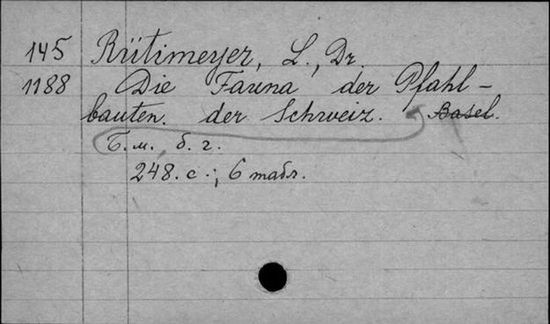 145 Rütimeyer, L., Dr.
1188 Die Fauna der Pfahl-
bauten. der Schweiz. Basel.
Б.м., б. г.
248. с.; 6 табл.